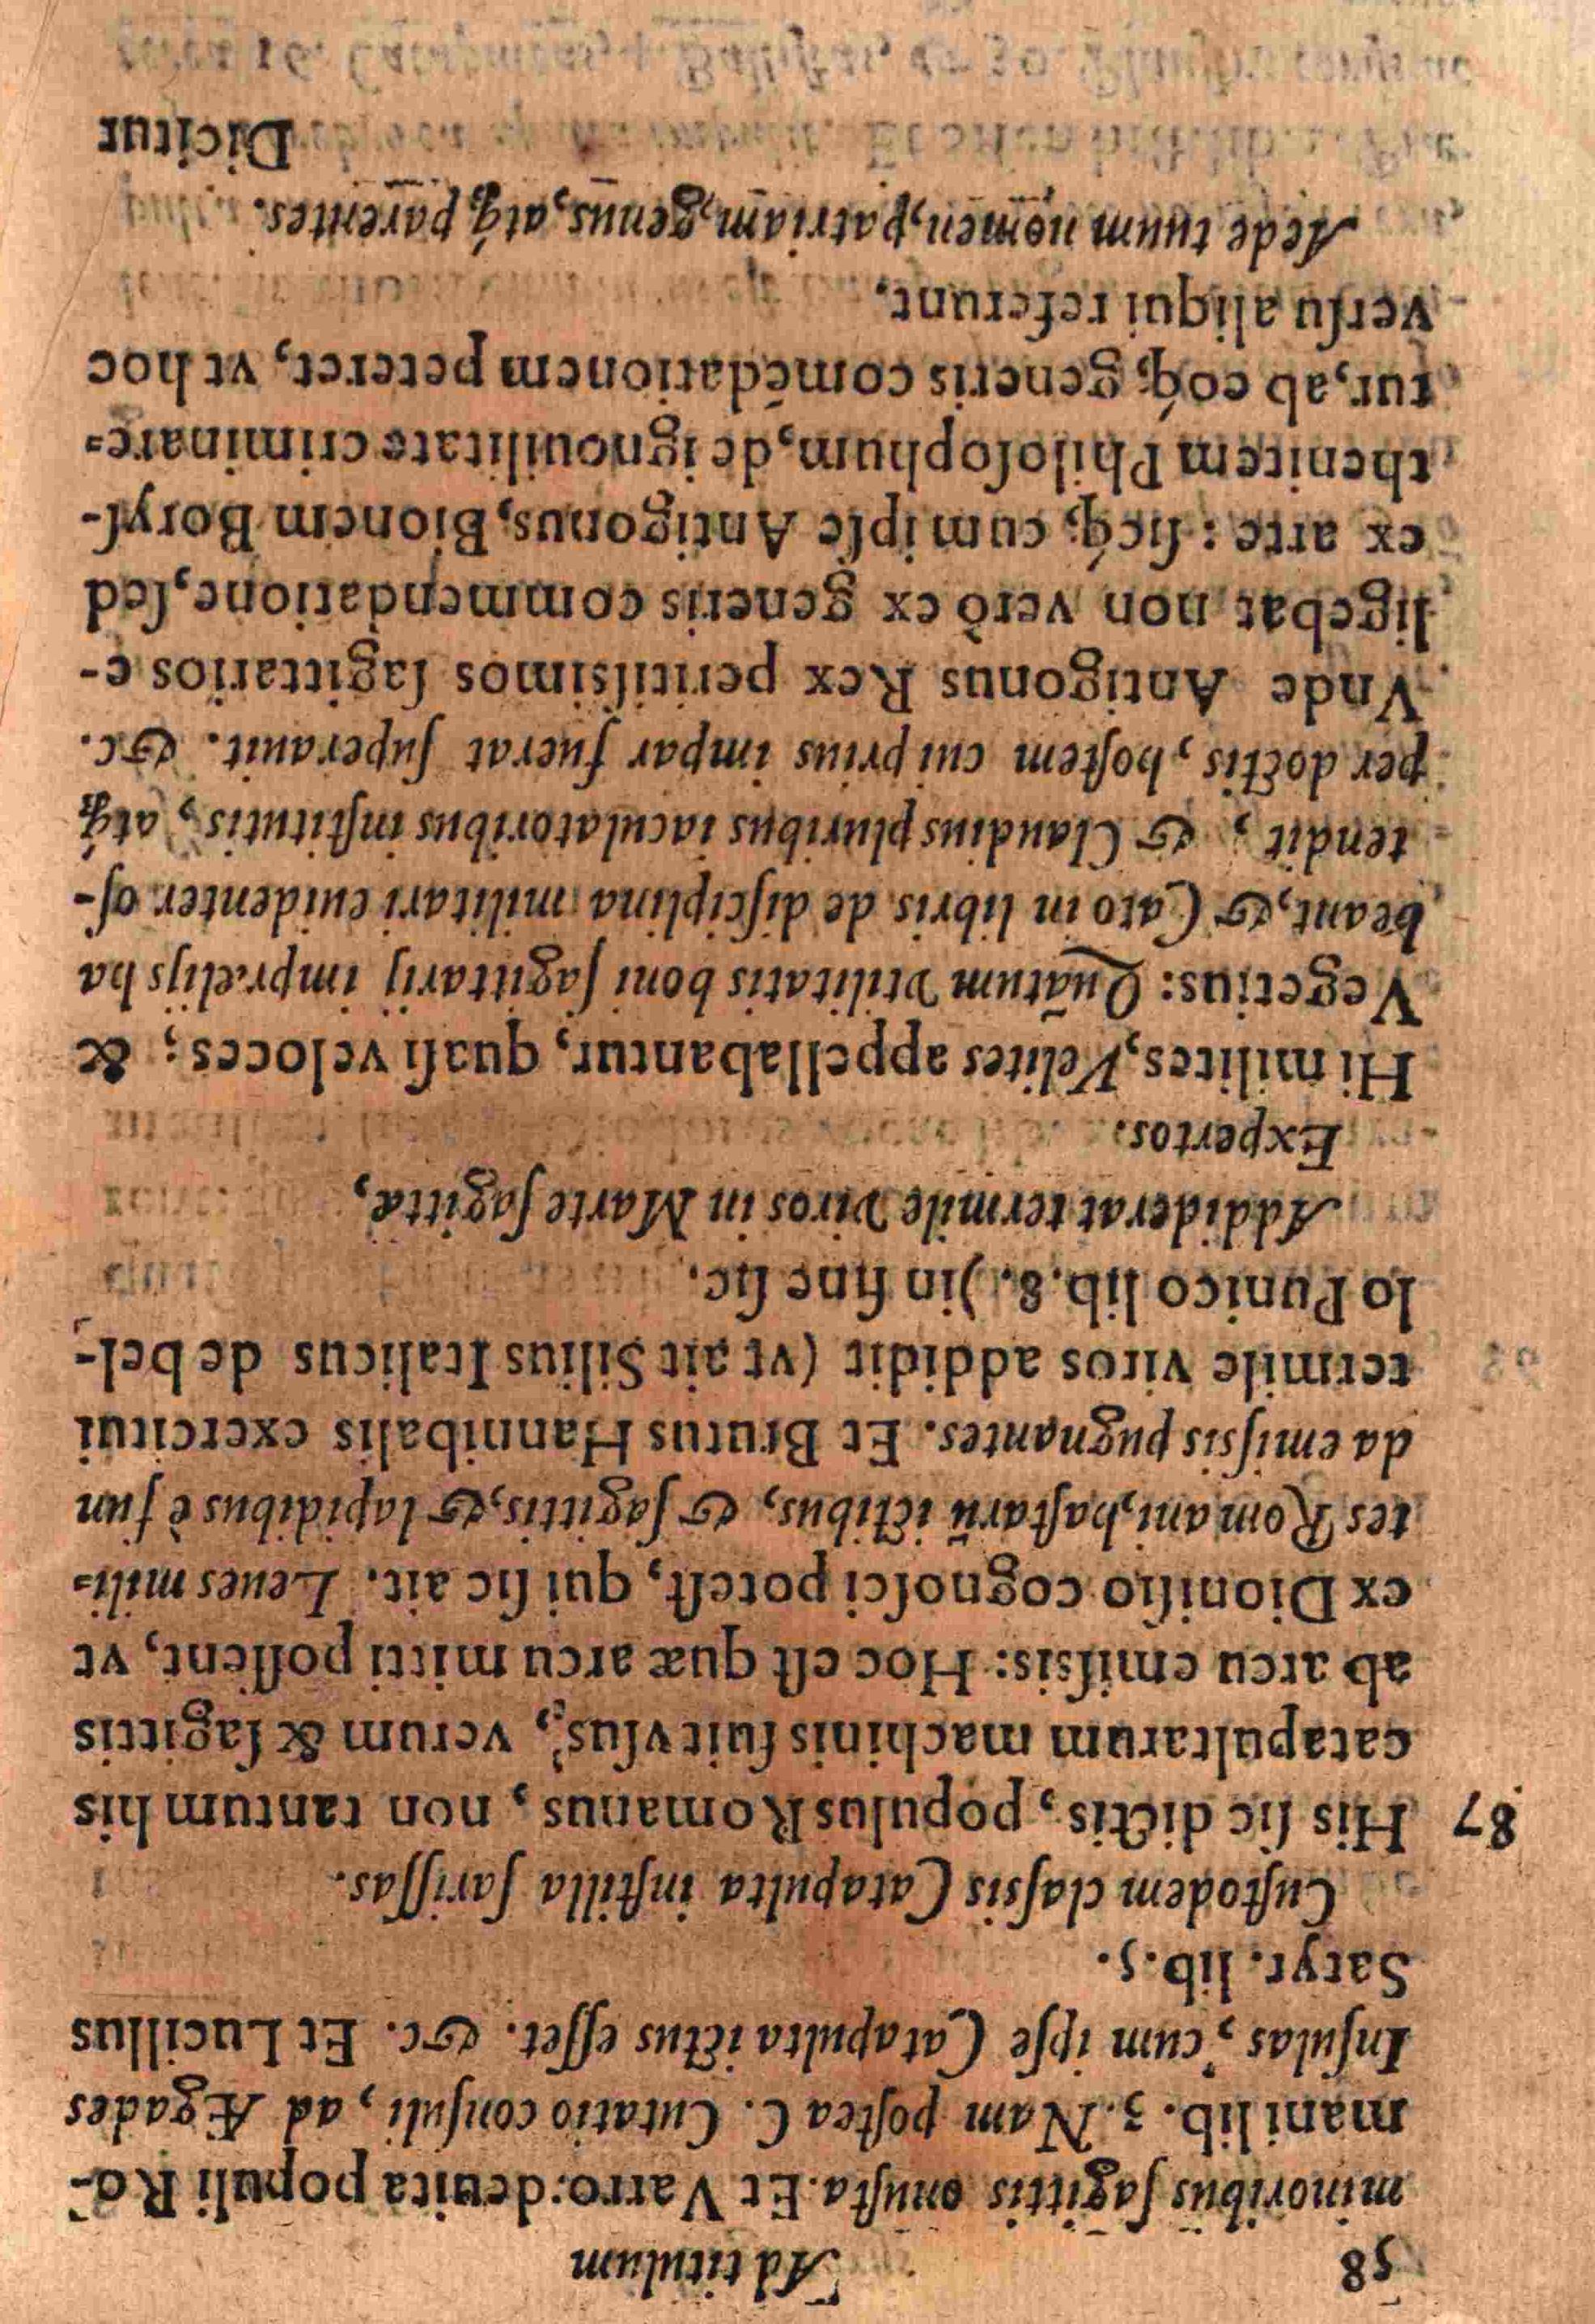 58 Ad titulum
minoribus sagittis onusta. Et Varro. de vita populi Ro-
mani lib. 3. Nam postea C. Cutatio consuli, ad Ægades
Insulas, cum ipse Catapulta ictus esset. &c. Et Lucillus
Satyr. lib. 5.
Custodem classis Catapulta instilla sarissas.
87 His sic dictis, populus Romanus, non tantum his
catapultarum machinis fuit vsus, verum & sagittis
ab arcu emissis: Hoc est quæ arcu mitti possent, vt
ex Dionisio cognosci potest, qui sic ait. Leues mili=
tes Romani, hastarũ ictibus, & sagittis, & lapidibus è fun
da emissis pugnantes. Et Brutus Hannibalis exercitui
termile viros addidit (vt ait Silius Italicus de bel-
lo Punico lib. 8.) in fine sic.
Addiderat termile viros in Marte sagittæ,
Expertos.
Hi milites, Velites appellabantur, quasi veloces; &
Vegetius: Quãtum vtilitatis boni sagittarij imprælijs ha
beant, & Cato in libris de disciplina militari euidenter os-
tendit, & Claudius pluribus iaculatoribus institutis, atq́;
per doctis, hostem cui prius impar fuerat superauit. &c.
Vnde Antigonus Rex peritissimos sagittarios e-
ligebat non verò ex generis commendatione, sed
ex arte: sicq́; cum ipse Antigonus, Bionem Borys-
thenitem Philosophum, de ignouilitate criminare=
tur, ab eoq́; generis comẽdationem peteret, vt hoc
versu aliqui referunt.
Aede tuum nomen, patriam, genus, atq́; parentes.
Dicitur